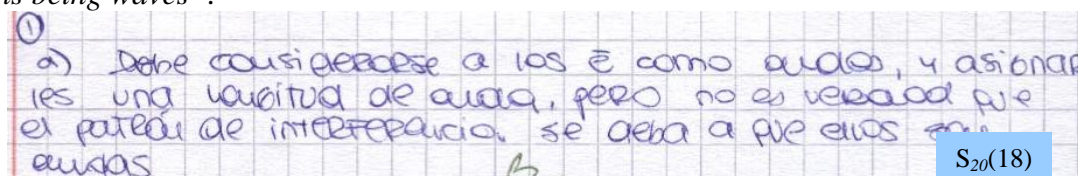 is being waves".
①
a) Debe considerarse a los ē como ondas, y asignar
les una longitud de onda, pero no es verdad que
el patrón de interferencia. se deba a que ellos son
ondas
S20(18)